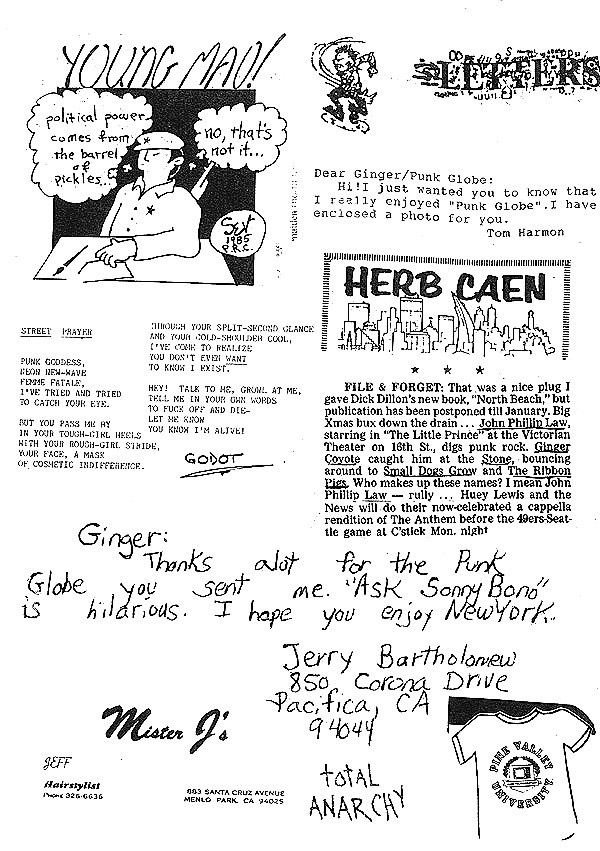 YOUNG MAO!
political power
comes from
the barrel
of
pickles...
no, that's
not it...
Sept
1985
P.R.C.
LETTERS
Dear Ginger/Punk Globe:
Hi!I just wanted you to know that
I really enjoyed "Punk Globe".I have
enclosed a photo for you.
Tom Harmon
HERB CAEN
FILE & FORGET: That was a nice plug I
gave Dick Dillon's new book, "North Beach," but
publication has been postponed till January. Big
Xmas bux down the drain ... John Phillip Law,
starring in "The Little Prince" at the Victorian
Theater on 16th St., digs punk rock. Ginger
Coyote caught him at the Stone, bouncing
around to Small Dogs Grow and The Ribbon
Pigs. Who makes up these names? I mean John
Phillip Law — rully ... Huey Lewis and the
News will do their now-celebrated a cappella
rendition of The Anthem before the 49ers-Seat-
tle game at C'stick Mon. night
STREET PRAYER
PUNK GODDESS,
NEON NEW-WAVE
FEMME FATALE,
I'VE TRIED AND TRIED
TO CATCH YOUR EYE.
BUT YOU PASS ME BY
IN YOUR TOUGH-GIRL HEELS
WITH YOUR ROUGH-GIRL STRIDE,
YOUR FACE, A MASK
OF COSMETIC INDIFFERENCE.
THROUGH YOUR SPLIT-SECOND GLANCE
AND YOUR COLD-SHOULDER COOL,
I'VE COME TO REALIZE
YOU DON'T EVEN WANT
TO KNOW I EXIST.
HEY! TALK TO ME, GROWL AT ME,
TELL ME IN YOUR OWN WORDS
TO FUCK OFF AND DIE-
LET ME KNOW
YOU KNOW I'M ALIVE!
GODOT
Ginger:
Thanks alot for the Punk
Globe you sent me. "Ask Sonny Bono"
is hilarious. I hope you enjoy New York.
Jerry Bartholomew
850 Corona Drive
Pacifica, CA
94044
total
ANARCHY
Mister J's
JEFF
Hairstylist
Phone 326-6636
883 SANTA CRUZ AVENUE
MENLO PARK, CA 94025
PINE VALLEY
UNIVERSITY